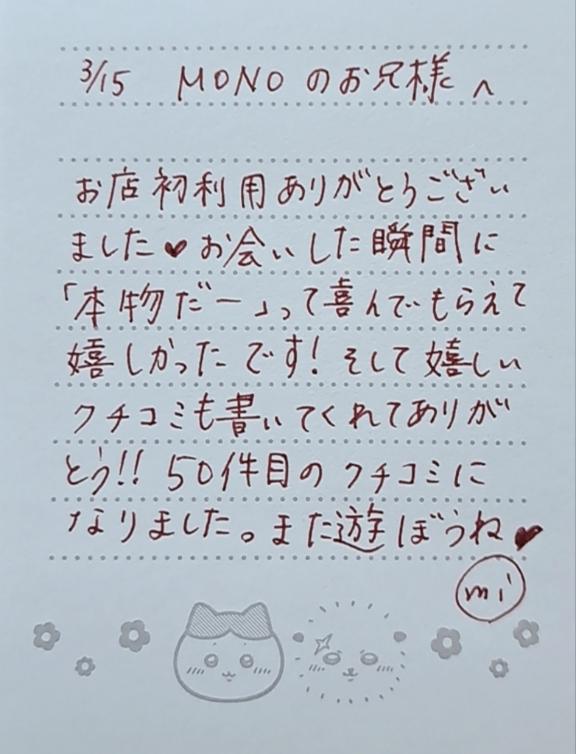 3/15 MONOのお兄様へ
お店初利用ありがとうござい
ました♥お会いした瞬間に
「本物だー」って喜んでもらえて
嬉しかったです!そして嬉しい
クチコミも書いてくれてありが
とう!!50件目のクチコミに
なりました。また遊ぼうね♥
mi